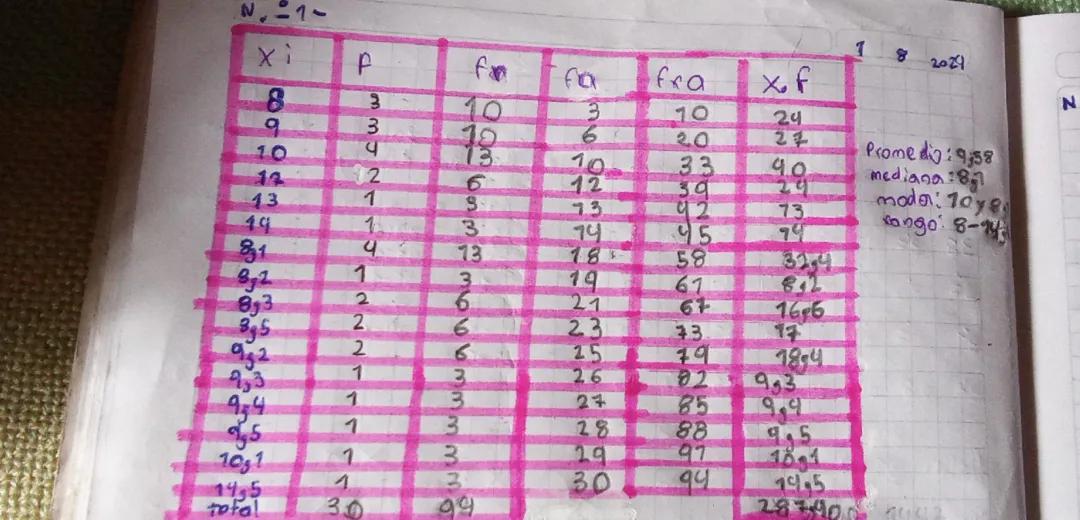 N.º 1-
7 8 2024
xi f fr fa fra x.f
8 3 10 3 10 24
9 3 10 6 20 27
10 4 13 10 33 40
12 2 6 12 39 24
13 1 3 13 42 13
14 1 3 14 45 14
8,1 4 13 18 58 32,4
8,2 1 3 19 61 8,2
8,3 2 6 21 67 16,6
8,5 2 6 23 73 17
9,2 2 6 25 79 18,4
9,3 1 3 26 82 9,3
9,4 1 3 27 85 9,4
9,5 1 3 28 88 9,5
10,1 1 3 29 91 10,1
14,5 1 3 30 94 14,5
total 30 94 287,40
Promedio: 9,58
mediana: 8,1
moda: 10 y 8,
rango: 8-14,
N